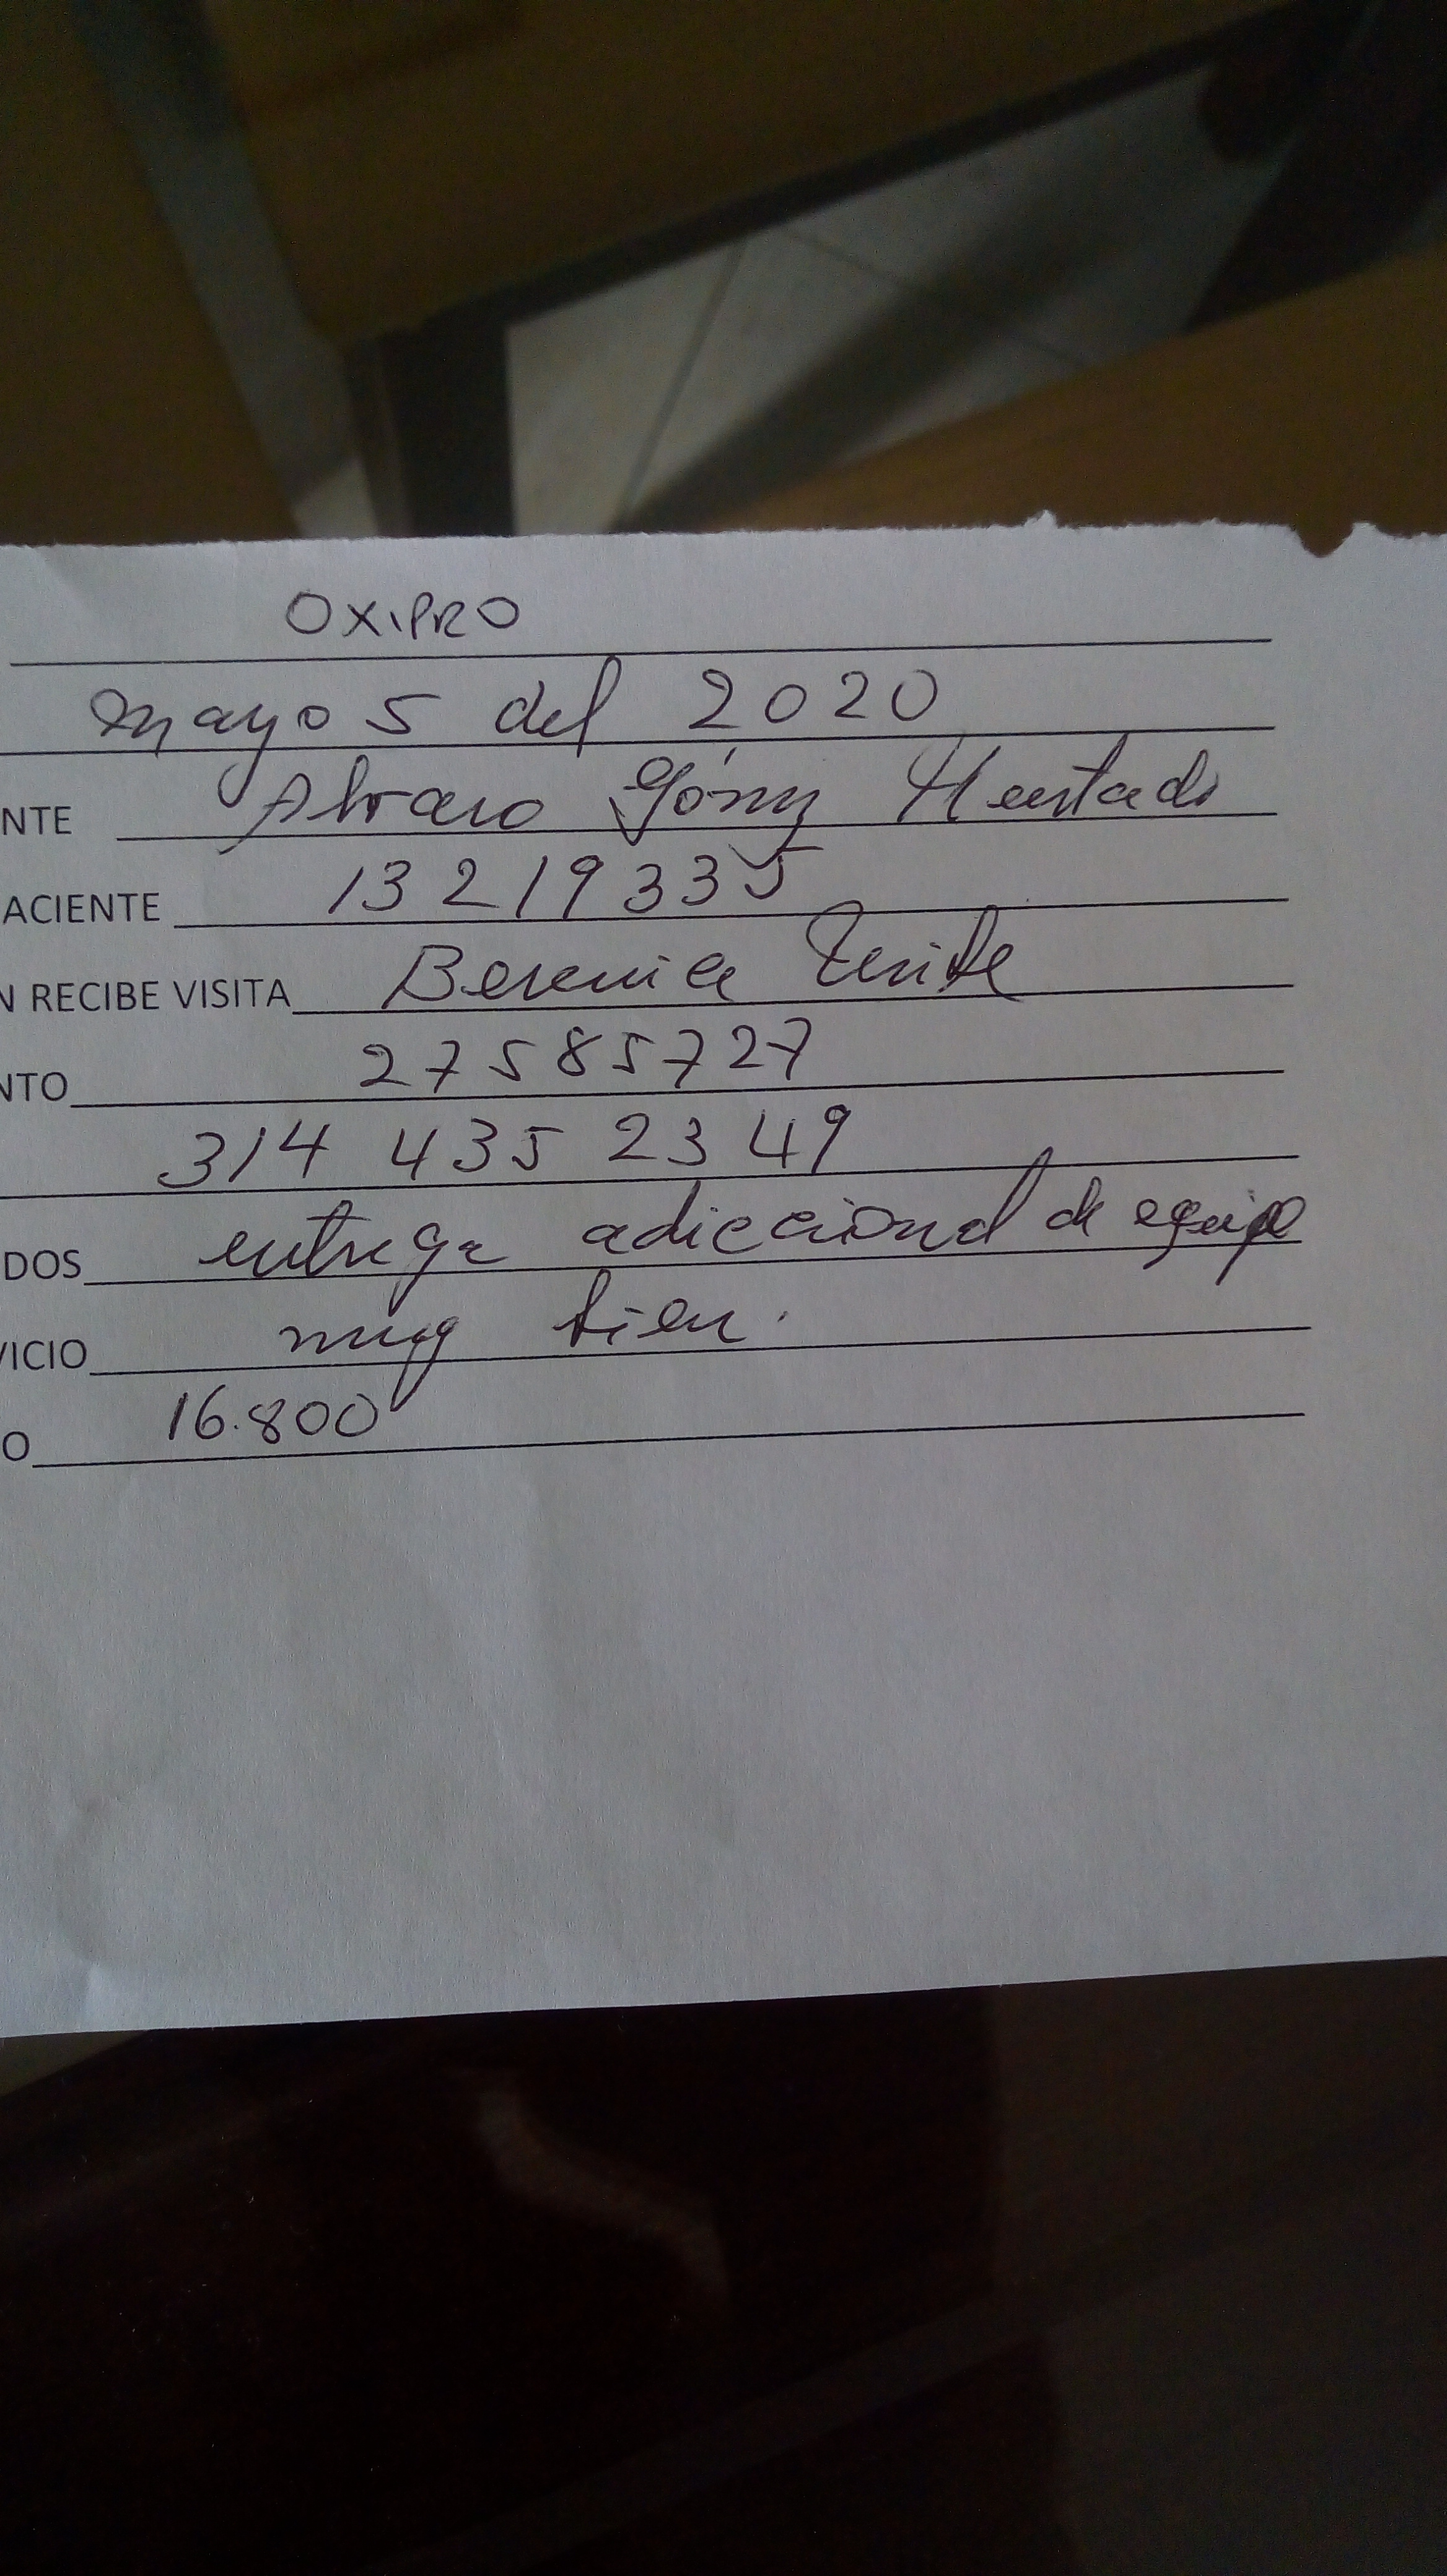 OXIPRO
mayo 5 del 2020
NTE Alvaro Gómez Hurtado
ACIENTE 13219335
N RECIBE VISITA Berenice
NTO 27585727
314 435 2349
DOS entrega adiccional de equipo
VICIO muy bien.
O 16.800